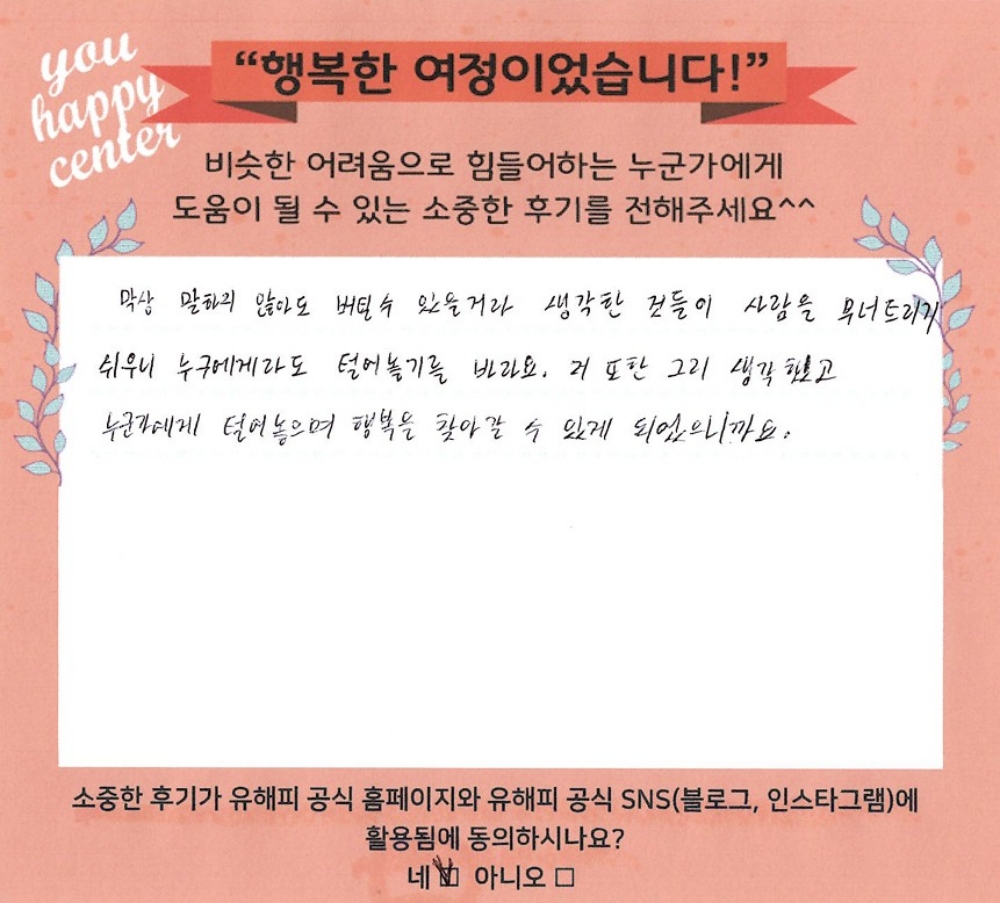 you
happy
center
“행복한 여정이었습니다!”
비슷한 어려움으로 힘들어하는 누군가에게
도움이 될 수 있는 소중한 후기를 전해주세요^^
막상 말하지 않아도 버틸 수 있을거라 생각한 것들이 사람을 무너트리기
쉬우니 누구에게라도 털어놓기를 바라요. 저 또한 그리 생각했고
누군가에게 털어놓으며 행복을 찾아갈 수 있게 되었으니까요.
소중한 후기가 유해피 공식 홈페이지와 유해피 공식 SNS(블로그, 인스타그램)에
활용됨에 동의하시나요?
네 ☑ 아니오 □